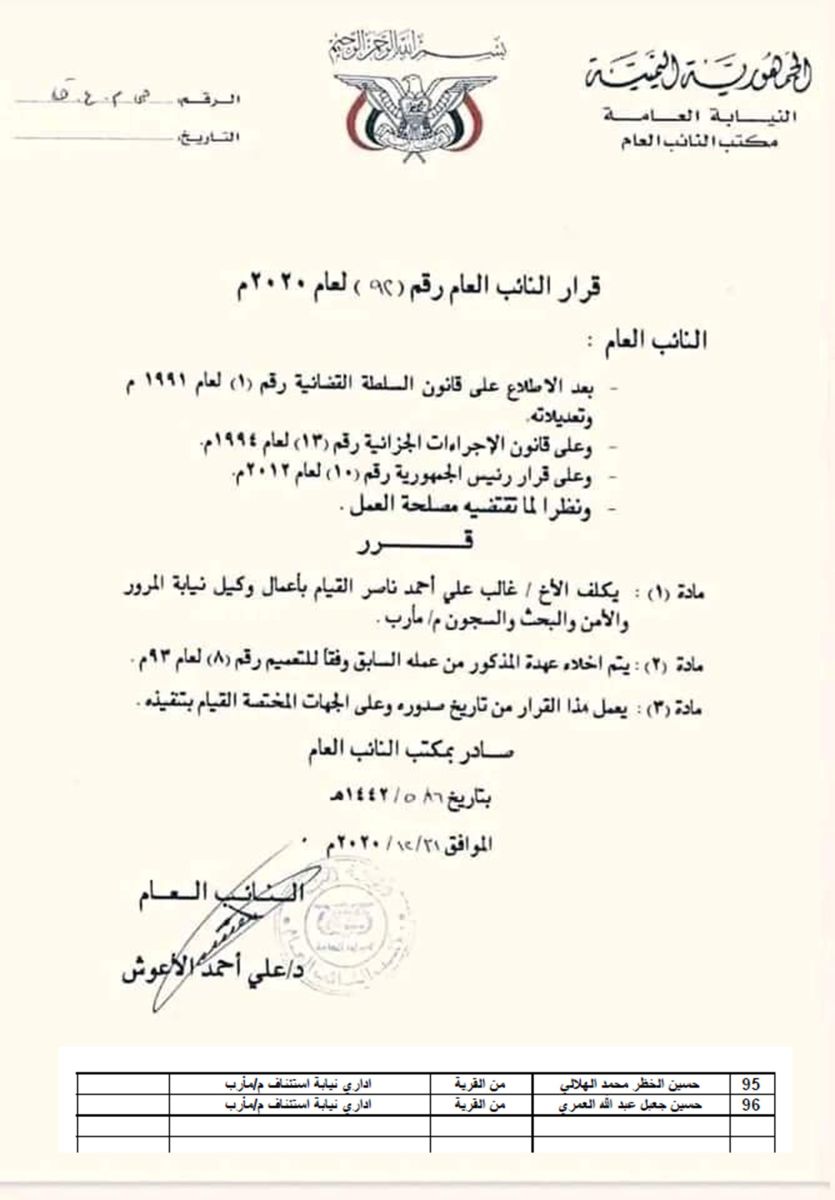 بسم الله الرحمن الرحيم
الجمهورية اليمنية
النيابة العامة
مكتب النائب العام
الرقم:
التاريخ:
قرار النائب العام رقم (٩٢) لعام ٢٠٢٠م
النائب العام :
- بعد الاطلاع على قانون السلطة القضائية رقم (١) لعام ١٩٩١ م
وتعديلاته.
- وعلى قانون الإجراءات الجزائية رقم (١٣) لعام ١٩٩٤م.
- وعلى قرار رئيس الجمهورية رقم (١٠) لعام ٢٠١٢م.
- ونظرا لما تقتضيه مصلحة العمل .
قــــــــرر
مادة (١) : يكلف الأخ / غالب علي أحمد ناصر القيام بأعمال وكيل نيابة المرور
والأمن والبحث والسجون م/ مأرب .
مادة (٢) : يتم اخلاء عهدة المذكور من عمله السابق وفقاً للتعميم رقم (٨) لعام ٩٣م .
مادة (٣) : يعمل هذا القرار من تاريخ صدوره وعلى الجهات المختصة القيام بتنفيذه .
صادر بمكتب النائب العام
بتاريخ /٥/١٤٤٢هـ
الموافق ٣١/١٢/٢٠٢٠م
النائب العام
د/علي أحمد الأعوش
95 حسين الخظر محمد الهلالي من القرية اداري نيابة استئناف م/مأرب
96 حسين جعبل عبد الله العمري من القرية اداري نيابة استئناف م/مأرب